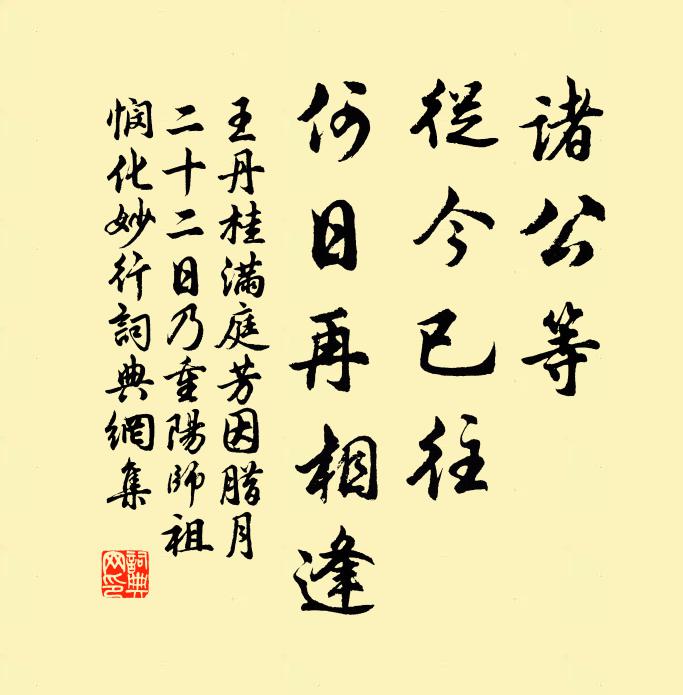 諸公等
從今已往
何日再相逢
王丹桂滿庭芳因腊月
二十二日乃重陽師祖
憫化妙行詞典網集
詞典
网印